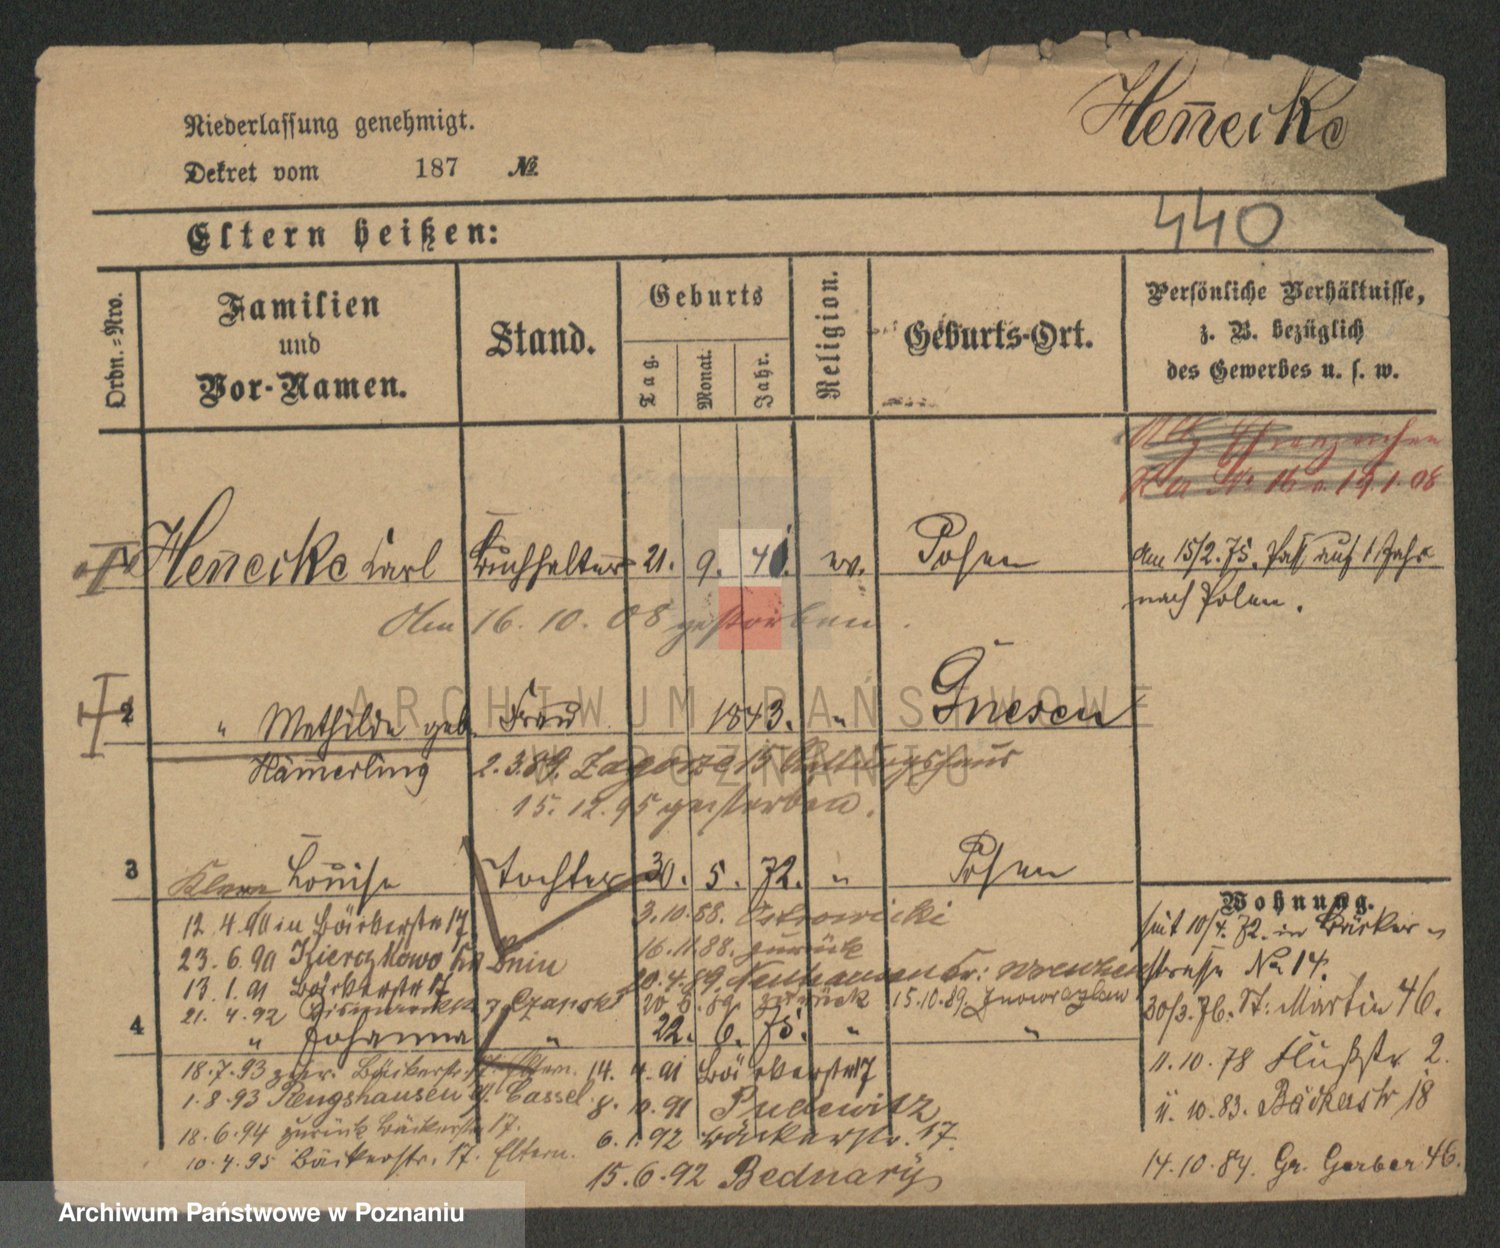 Henecke
Niederlassung genehmigt.
Dekret vom 187 №
440
Eltern heißen:
Ordn.-Nro.
Familien
und
Vor-Namen.
Stand.
Geburts
Tag.
Monat.
Jahr.
Religion.
Geburts-Ort.
Persönliche Verhältnisse,
z. B. bezüglich
des Gewerbes u. s. w.
16 19.1.08
Henecke Carl Buchhalter 21. 9. 41. ev. Posen
Am 15/2.75. Paß auf 1 Jahr
nach Polen.
Am 16.10.08 gestorben.
2 " Mathilde geb. Frau 1843. " Gnesen
Hämerling 2.3.89. Zagorze 15
15.12.95 gestorben.
3 Klara Louise Tochter 30. 5. 72. " Posen
Wohnung.
12.4.90 in Bäckerstr 17
3.10.88. Ostrowicki
seit 10/4.72. in Bäcker-
23.6.90 Kierczkowo Kr Znin
16.11.88. zurück
20.4.89.
straße No 14.
13.1.91 Bäckerstr 17
20.6.89. zurück 15.10.89. Inowrazlaw
30/3.76. St: Martin 46.
21.4.92
4 " Johanna " 22. 6. 75. " "
18.7.93 zur. Bäckerstr. 17 Eltern.
14.4.91 Bäckerstr 17
11.10.78 Flußstr 2.
1.8.93 Rengshausen Cassel
8.10.91 Pudewitz
11.10.83. Bäckerstr 18
18.6.94 zurück Bäckerstr 17.
6.1.92 Bäckerstr. 17.
10.4.95 Bäckerstr. 17. Eltern.
15.6.92 Bednary
14.10.84. Gr. Gerber 46.
ARCHIWUM PAŃSTWOWE
W POZNANIU
Archiwum Państwowe w Poznaniu